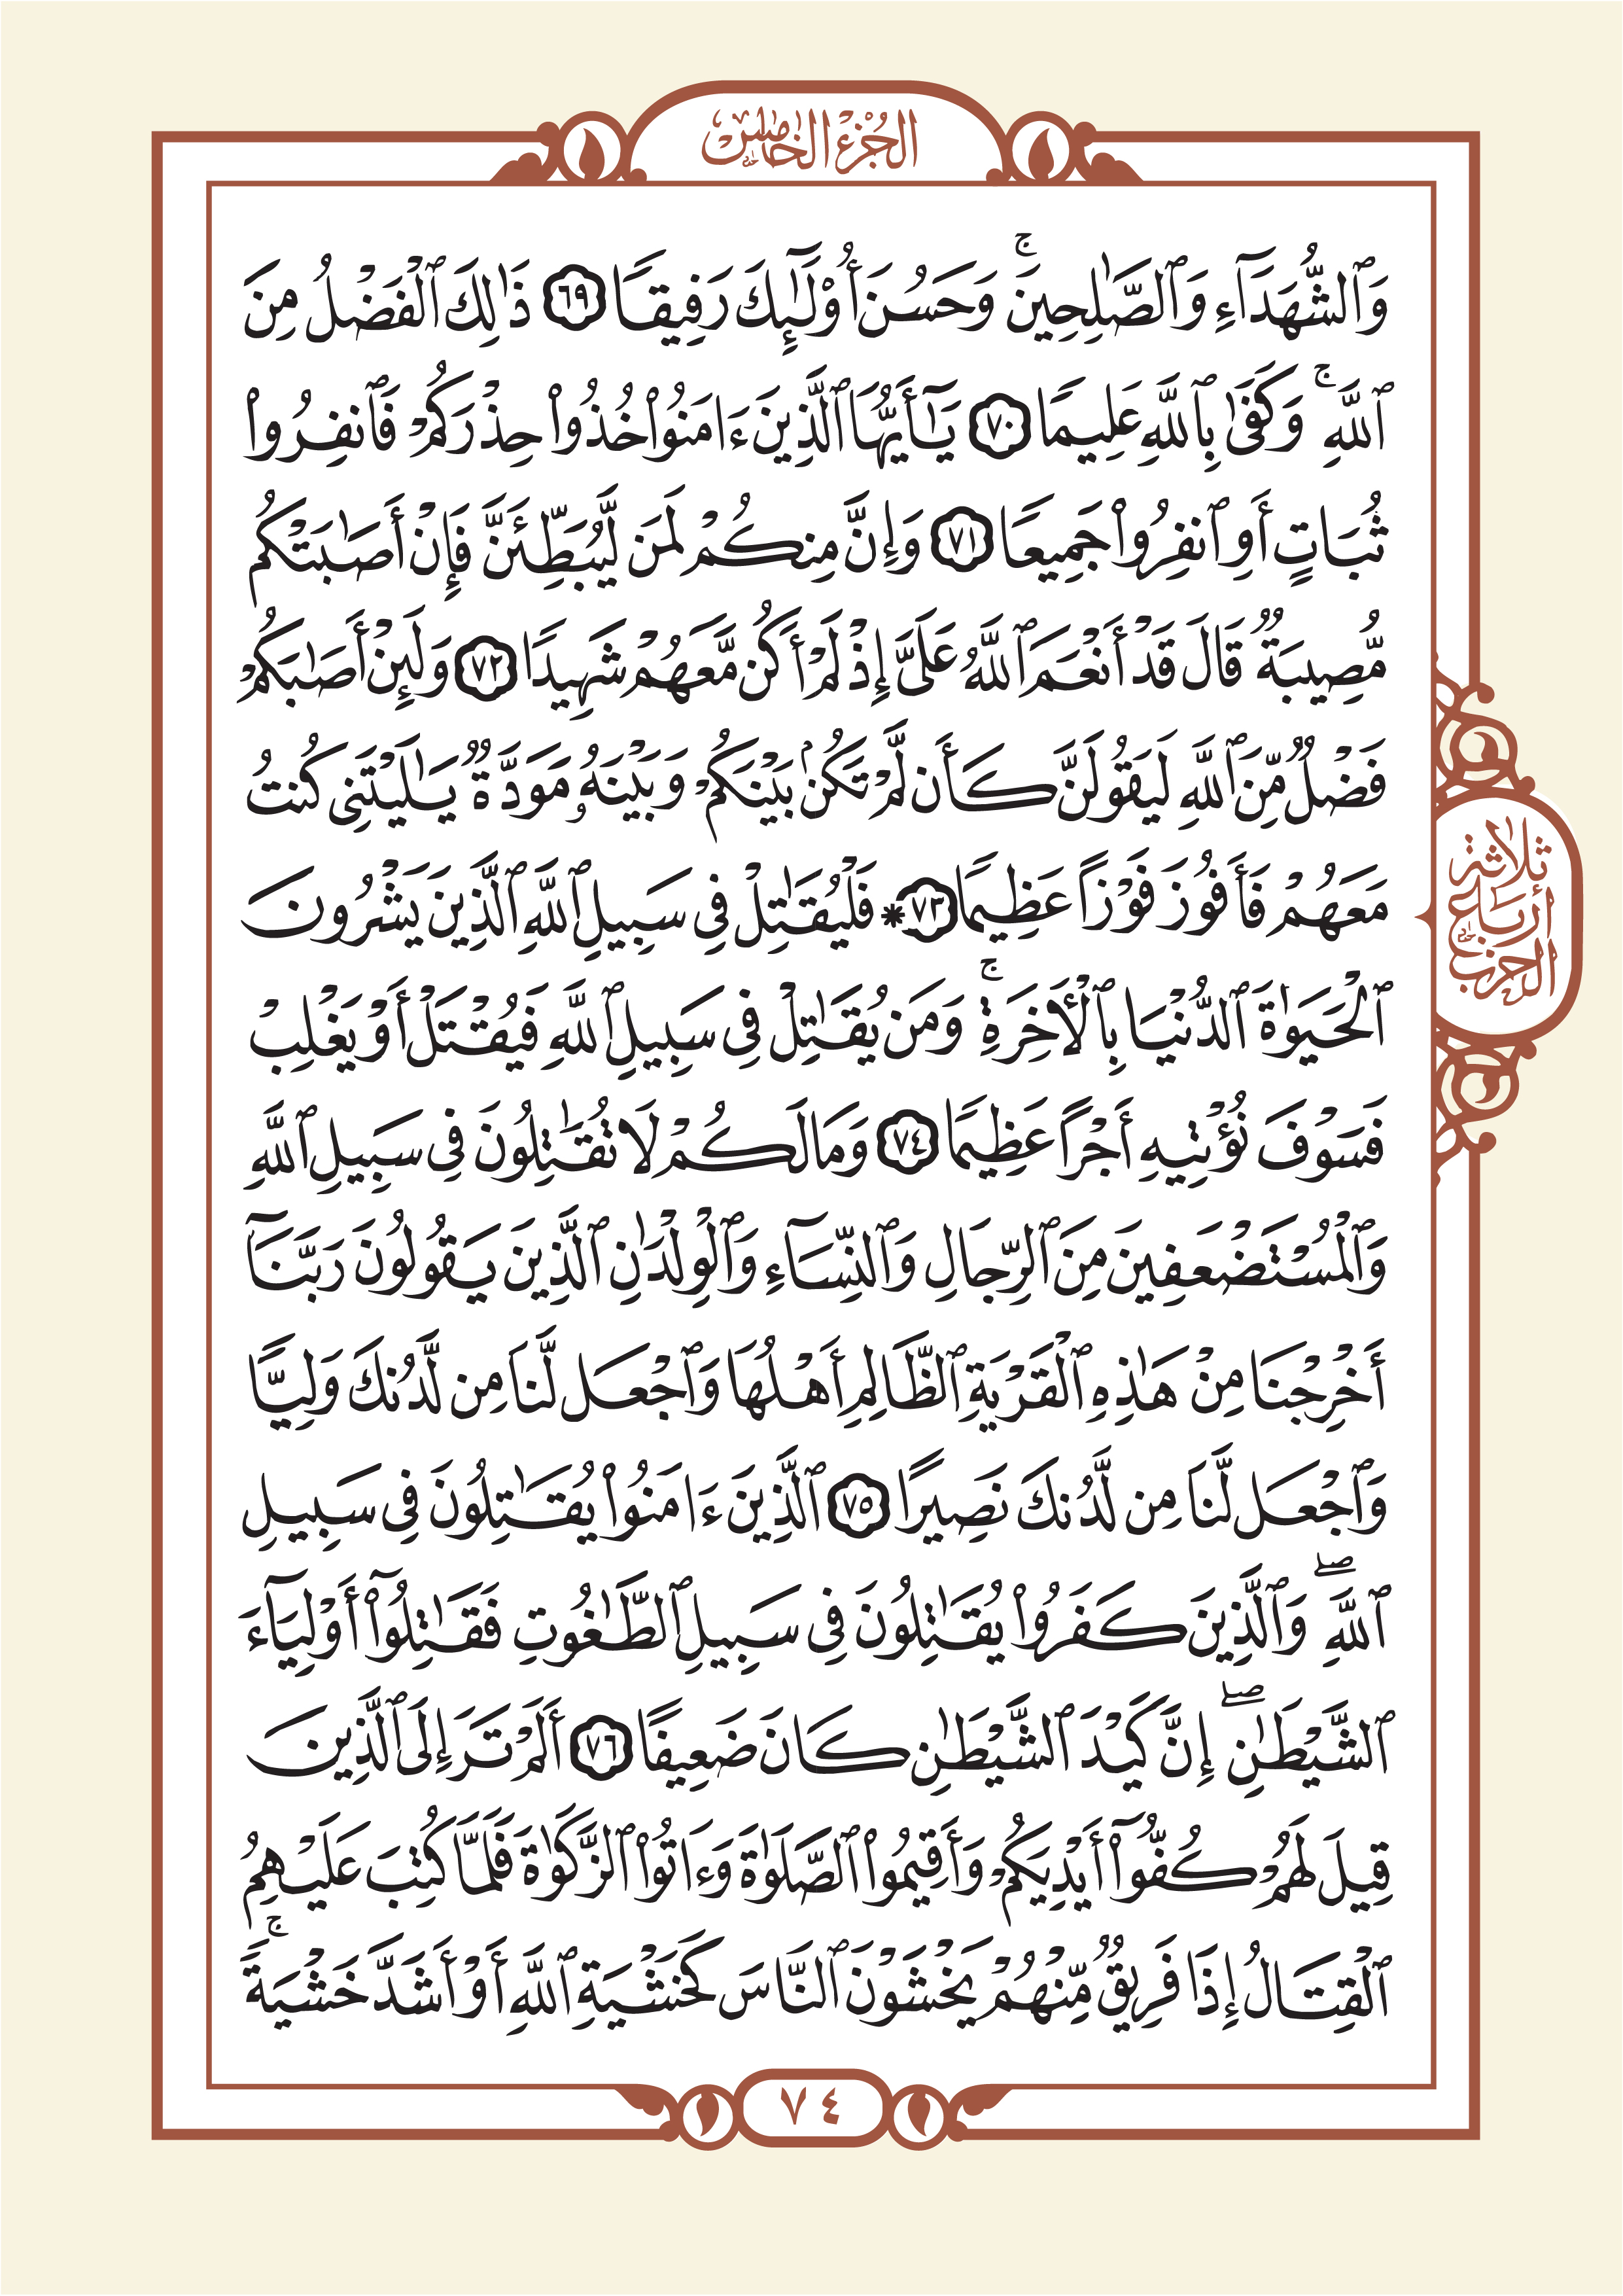 الجزء الخامس
وَٱلشُّهَدَآءِ وَٱلصَّٰلِحِينَۚ وَحَسُنَ أُوْلَٰٓئِكَ رَفِيقًا ٦٩ ذَٰلِكَ ٱلْفَضْلُ مِنَ
ٱللَّهِۚ وَكَفَىٰ بِٱللَّهِ عَلِيمًا ٧٠ يَٰٓأَيُّهَا ٱلَّذِينَ ءَامَنُوا۟ خُذُوا۟ حِذْرَكُمْ فَٱنفِرُوا۟
ثُبَاتٍ أَوِ ٱنفِرُوا۟ جَمِيعًا ٧١ وَإِنَّ مِنكُمْ لَمَن لَّيُبَطِّئَنَّ فَإِنْ أَصَٰبَتْكُم
مُّصِيبَةٌ قَالَ قَدْ أَنْعَمَ ٱللَّهُ عَلَىَّ إِذْ لَمْ أَكُن مَّعَهُمْ شَهِيدًا ٧٢ وَلَئِنْ أَصَٰبَكُمْ
فَضْلٌ مِّنَ ٱللَّهِ لَيَقُولَنَّ كَأَن لَّمْ تَكُنۢ بَيْنَكُمْ وَبَيْنَهُۥ مَوَدَّةٌ يَٰلَيْتَنِى كُنتُ
مَعَهُمْ فَأَفُوزَ فَوْزًا عَظِيمًا ٧٣ * فَلْيُقَٰتِلْ فِى سَبِيلِ ٱللَّهِ ٱلَّذِينَ يَشْرُونَ
ٱلْحَيَوٰةَ ٱلدُّنْيَا بِٱلْأَخِرَةِۚ وَمَن يُقَٰتِلْ فِى سَبِيلِ ٱللَّهِ فَيُقْتَلْ أَوْ يَغْلِبْ
فَسَوْفَ نُؤْتِيهِ أَجْرًا عَظِيمًا ٧٤ وَمَا لَكُمْ لَا تُقَٰتِلُونَ فِى سَبِيلِ ٱللَّهِ
وَٱلْمُسْتَضْعَفِينَ مِنَ ٱلرِّجَالِ وَٱلنِّسَآءِ وَٱلْوِلْدَٰنِ ٱلَّذِينَ يَقُولُونَ رَبَّنَآ
أَخْرِجْنَا مِنْ هَٰذِهِ ٱلْقَرْيَةِ ٱلظَّالِمِ أَهْلُهَا وَٱجْعَل لَّنَا مِن لَّدُنكَ وَلِيًّا
وَٱجْعَل لَّنَا مِن لَّدُنكَ نَصِيرًا ٧٥ ٱلَّذِينَ ءَامَنُوا۟ يُقَٰتِلُونَ فِى سَبِيلِ
ٱللَّهِۖ وَٱلَّذِينَ كَفَرُوا۟ يُقَٰتِلُونَ فِى سَبِيلِ ٱلطَّٰغُوتِ فَقَٰتِلُوٓا۟ أَوْلِيَآءَ
ٱلشَّيْطَٰنِۖ إِنَّ كَيْدَ ٱلشَّيْطَٰنِ كَانَ ضَعِيفًا ٧٦ أَلَمْ تَرَ إِلَى ٱلَّذِينَ
قِيلَ لَهُمْ كُفُّوٓا۟ أَيْدِيَكُمْ وَأَقِيمُوا۟ ٱلصَّلَوٰةَ وَءَاتُوا۟ ٱلزَّكَوٰةَ فَلَمَّا كُتِبَ عَلَيْهِمُ
ٱلْقِتَالُ إِذَا فَرِيقٌ مِّنْهُمْ يَخْشَوْنَ ٱلنَّاسَ كَخَشْيَةِ ٱللَّهِ أَوْ أَشَدَّ خَشْيَةًۚ
ثلاثة
أرباع
الحزب
٧٤